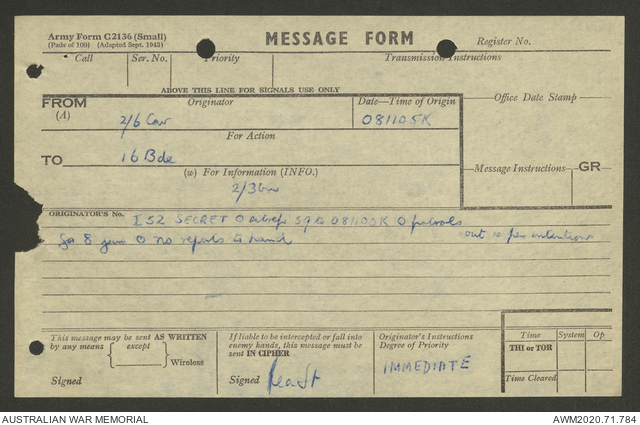 Army Form C2136 (Small)
(Pads of 100) (Adapted Sept. 1943)
MESSAGE FORM
Register No.
Call Ser. No. Priority Transmission Instructions
ABOVE THIS LINE FOR SIGNALS USE ONLY
FROM Originator Date—Time of Origin
(A) 2/6 Cav 081105K
Office Date Stamp
For Action
TO 16 Bde
(w) For Information (INFO.)
Message Instructions GR
2/3
ORIGINATOR'S No. I 52 SECRET O 59 to 081100K O patrols
for 8 O no reports to hand out as per intentions
This message may be sent AS WRITTEN
by any means except
Wireless
Signed
If liable to be intercepted or fall into
enemy hands, this message must be
sent IN CIPHER
Signed
Originator's Instructions
Degree of Priority
IMMEDIATE
Time System Op
THI or TOR
Time Cleared
AUSTRALIAN WAR MEMORIAL AWM2020.71.784